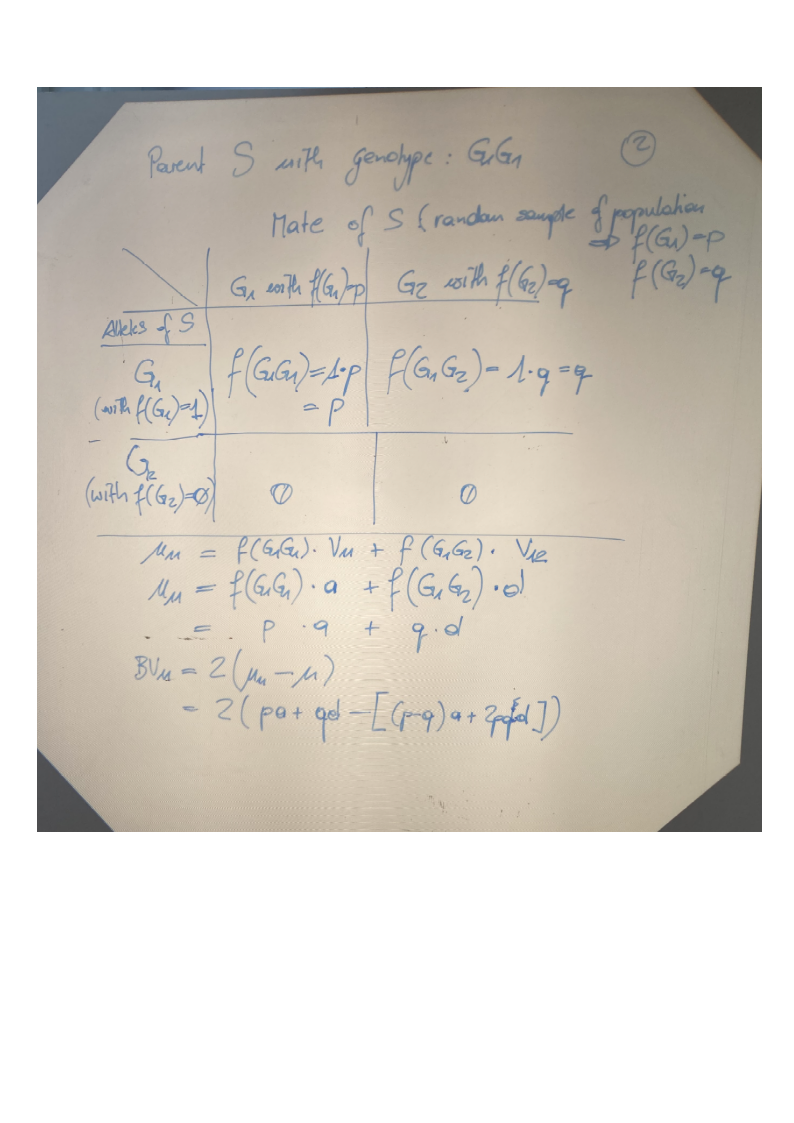 Parent S with genotype: G1G1
②
Mate of S (random sample of population
⇒ f(G1)=p
f(G2)=q
G1 with f(G1)=p G2 with f(G2)=q
Alleles of S
G1 f(G1G1)=1·p f(G1G2)=1·q=q
(with f(G1)=1) = p
G2
(with f(G2)=0) 0 0
μ11 = f(G1G1)·V11 + f(G1G2)·V12
μ11 = f(G1G1)·a + f(G1G2)·d
= p·a + q·d
BV11 = 2(μ11 − μ)
= 2(pa + qd − [(p-q)a + 2pqd])